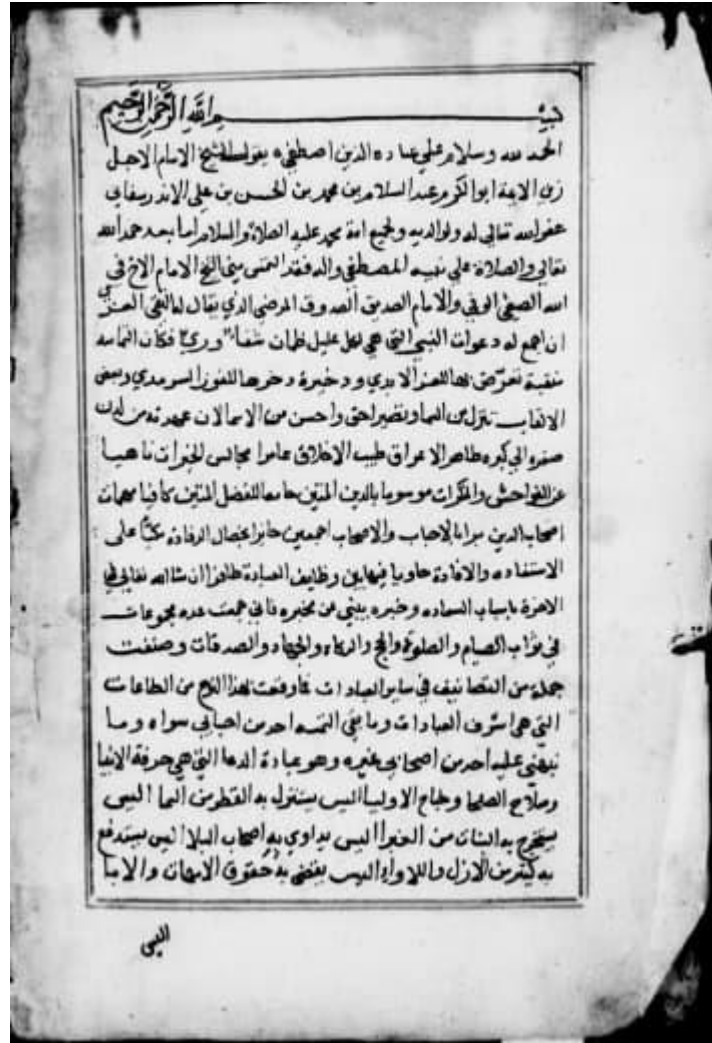 بسم الله الرحمن الرحيم
الحمد لله وسلام على عباده الذين اصطفى ه يقول الشيخ الامام الاجل
زين الايمة ابو الكرم عبد السلام بن محمد بن الحسن بن علي الاندرسفاني
غفر الله تعالى له ولوالديه ولجميع امة محمد عليه الصلاة والسلام اما بعد حمد الله
تعالى والصلاة على نبيه المصطفى واله فقد التمس مني الشيخ الامام الاخ في
الله الصفي الوفي والامام الصديق الصدوق المرضي الذي يقال له التقي
ان اجمع له دعوات النبي التي هي لكل عليل ظمان شفاء وري فكان التماسه
منقبة تعرض بها للعز الابدي وذخيرة دخرها للفوز السرمدي وبعض
الالقاب تنزل من السماء واحسن من الاسما لان عهدته من لدن
صغره الى كبره طاهر الاعراق طيب الاخلاق عامرا مجالس الخيرات ناهيا
عن الفواحش والمنكرات موسوما بالدين المتين جامعا للفضل المتين كافيا مهمات
اصحاب الدين بالاحباب والاصحاب اجمعين حايزا لخصال مكبا على
الاستفاده والافادة حاويا فيما بين وظايف العبادة ظافرا ان شا الله تعالى في
الاخرة باسباب السعاده وخبره ينبي عن مخبره فاني جمعت عده مجموعات
في ثواب الصيام والصلوة والحج والزكاه والجهاد والصدقات وصنفت
جملة من التصانيف في ساير العبادات فما وقعت لهذا النوع من الطاعات
التي هي اشرف العبادات وما مني التمسه احد من احبابي سواه وما
نبهني عليه احد من اصحابي غيره وهو عبادة الدعا التي هي حرفة الانبيا
وسلاح الصلحا ونجاح الاوليا اليس يستنزل به القطر من السما اليس
يستخرج به النبات من الغبرا اليس يداوي به اصحاب البلا اليس يستدفع
به كثير من الازل واللاواء اليس يقضى به حقوق الامهات والابا
اليس